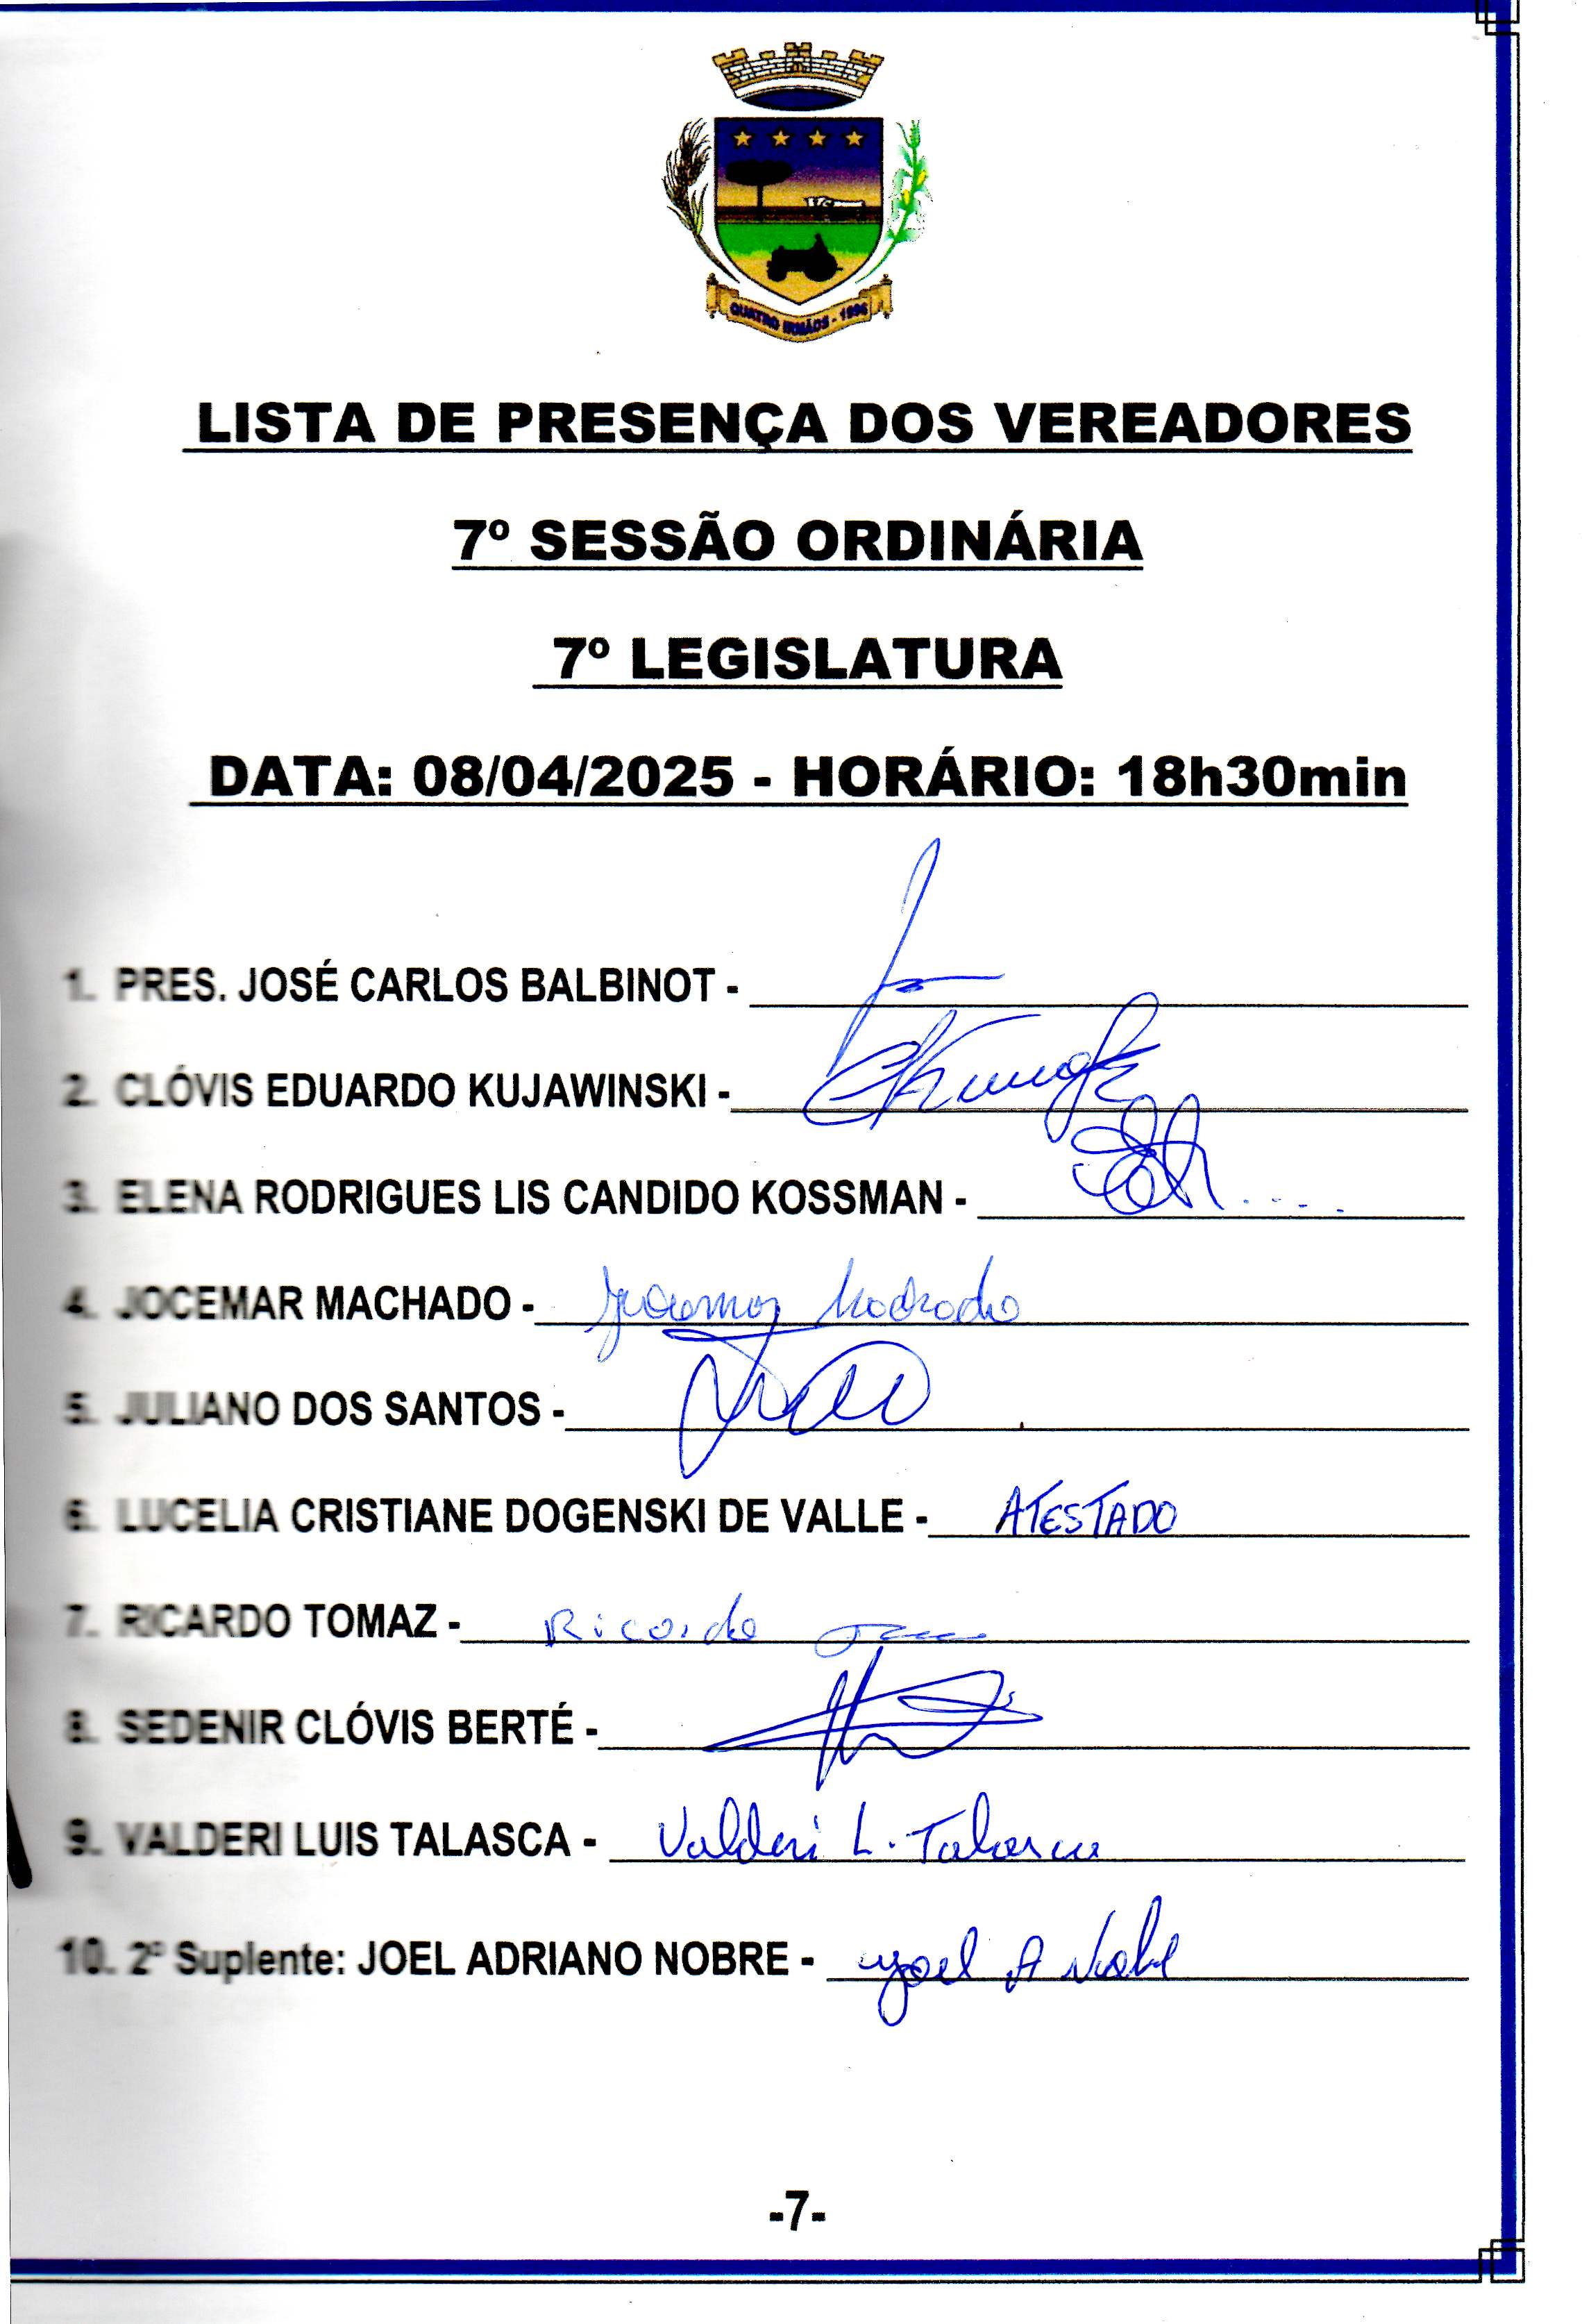 QUATRO IRMÃOS - 1996
LISTA DE PRESENÇA DOS VEREADORES
7º SESSÃO ORDINÁRIA
7º LEGISLATURA
DATA: 08/04/2025 - HORÁRIO: 18h30min
1. PRES. JOSÉ CARLOS BALBINOT -
2. CLÓVIS EDUARDO KUJAWINSKI -
3. ELENA RODRIGUES LIS CANDIDO KOSSMAN -
4. JOCEMAR MACHADO - Jocemar Machado
5. JULIANO DOS SANTOS -
6. LUCELIA CRISTIANE DOGENSKI DE VALLE - ATESTADO
7. RICARDO TOMAZ - Ricardo
8. SEDENIR CLÓVIS BERTÉ -
9. VALDERI LUIS TALASCA - Valderi L. Talasca
10. 2º Suplente: JOEL ADRIANO NOBRE - Joel A Nobre
-7-